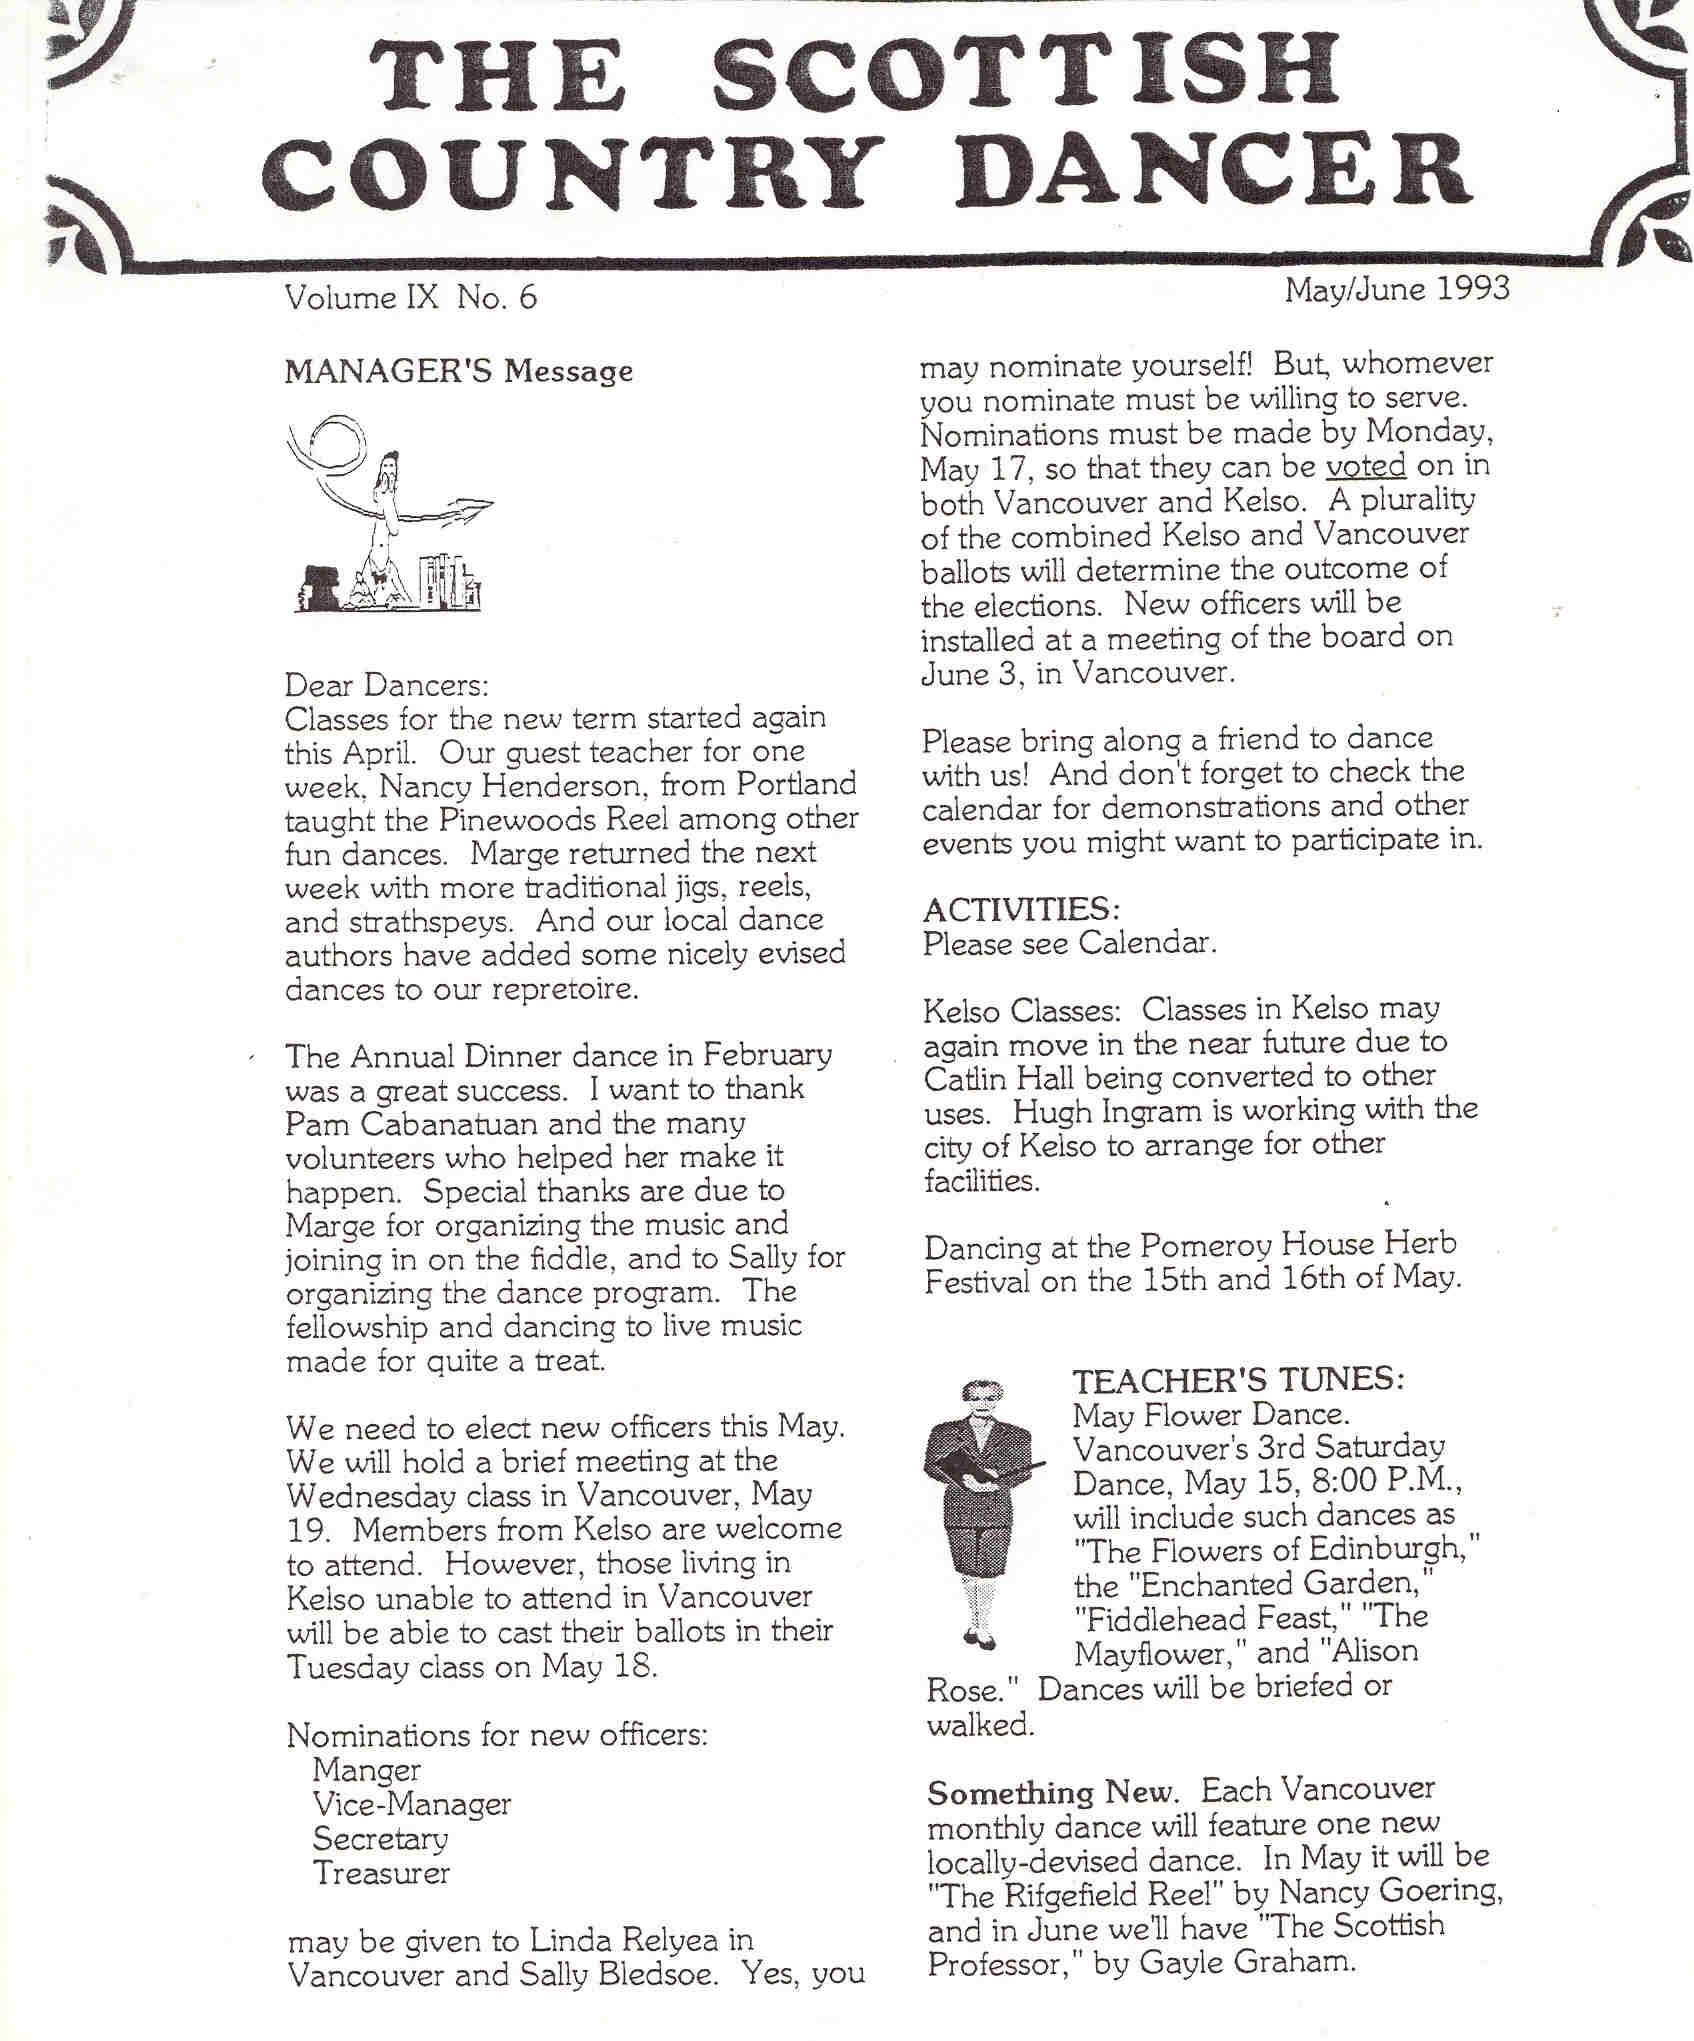 THE SCOTTISH
COUNTRY DANCER
Volume IX No. 6
May/June 1993
MANAGER'S Message
Dear Dancers:
Classes for the new term started again
this April. Our guest teacher for one
week, Nancy Henderson, from Portland
taught the Pinewoods Reel among other
fun dances. Marge returned the next
week with more traditional jigs, reels,
and strathspeys. And our local dance
authors have added some nicely evised
dances to our repretoire.
The Annual Dinner dance in February
was a great success. I want to thank
Pam Cabanatuan and the many
volunteers who helped her make it
happen. Special thanks are due to
Marge for organizing the music and
joining in on the fiddle, and to Sally for
organizing the dance program. The
fellowship and dancing to live music
made for quite a treat.
We need to elect new officers this May.
We will hold a brief meeting at the
Wednesday class in Vancouver, May
19. Members from Kelso are welcome
to attend. However, those living in
Kelso unable to attend in Vancouver
will be able to cast their ballots in their
Tuesday class on May 18.
Nominations for new officers:
Manger
Vice-Manager
Secretary
Treasurer
may be given to Linda Relyea in
Vancouver and Sally Bledsoe. Yes, you
may nominate yourself! But, whomever
you nominate must be willing to serve.
Nominations must be made by Monday,
May 17, so that they can be voted on in
both Vancouver and Kelso. A plurality
of the combined Kelso and Vancouver
ballots will determine the outcome of
the elections. New officers will be
installed at a meeting of the board on
June 3, in Vancouver.
Please bring along a friend to dance
with us! And don't forget to check the
calendar for demonstrations and other
events you might want to participate in.
ACTIVITIES:
Please see Calendar.
Kelso Classes: Classes in Kelso may
again move in the near future due to
Catlin Hall being converted to other
uses. Hugh Ingram is working with the
city of Kelso to arrange for other
facilities.
Dancing at the Pomeroy House Herb
Festival on the 15th and 16th of May.
TEACHER'S TUNES:
May Flower Dance.
Vancouver's 3rd Saturday
Dance, May 15, 8:00 P.M.,
will include such dances as
"The Flowers of Edinburgh,"
the "Enchanted Garden,"
"Fiddlehead Feast," "The
Mayflower," and "Alison
Rose." Dances will be briefed or
walked.
Something New. Each Vancouver
monthly dance will feature one new
locally-devised dance. In May it will be
"The Rifgefield Reel" by Nancy Goering,
and in June we'll have "The Scottish
Professor," by Gayle Graham.